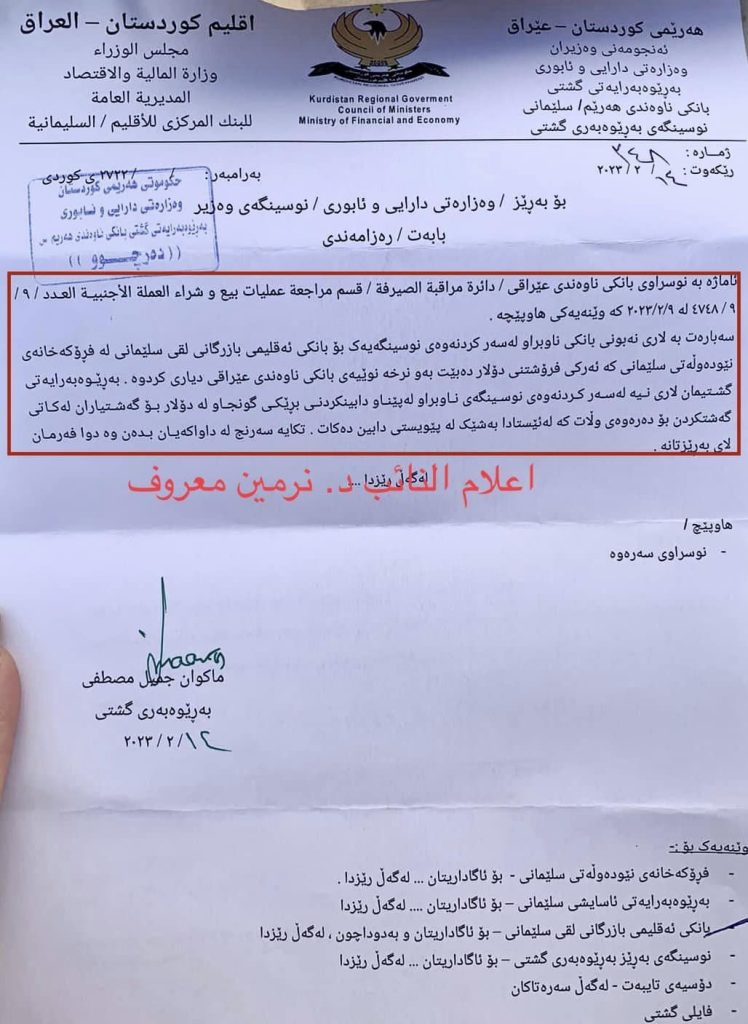 اقليم كوردستان - العراق
مجلس الوزراء
وزارة المالية والاقتصاد
المديرية العامة
للبنك المركزي للأقليم / السليمانية
Kurdistan Regional Goverment
Council of Ministers
Ministry of Financial and Economy
هەرێمی کوردستان – عێراق
ئەنجومەنی وەزیران
وەزارەتی دارایی و ئابوری
بەڕێوەبەرایەتی گشتی
بانکی ناوەندی هەرێم/ سلێمانی
نوسینگەی بەڕێوەبەری گشتی
ژمارە : ٣٤٨
رێکەوت : ١٤ / ٢ / ٢٠٢٣
بەرامبەر: / / ٢٧٢٢ ی کوردی
حکومەتی هەرێمی کوردستان
وەزارەتی دارایی و ئابوری
بەڕێوەبەرایەتی گشتی بانکی ناوەندی هەرێم س
(( دەرچوو ))
بۆ بەڕێز / وەزارەتی دارایی و ئابوری / نوسینگەی وەزیر
بابەت / رەزامەندی
ئاماژە بە نوسراوی بانکی ناوەندی عێراقی / دائرة مراقبة الصيرفة / قسم مراجعة عمليات بيع و شراء العملة الأجنبية العدد / ٩ /
٩ / ٤٧٤٨ لە ٢٠٢٣/٢/٩ کە وێنەیەکی هاوپێچە .
سەبارەت بە لاری نەبونی بانکی ناوبراو لەسەر کردنەوەی نوسینگەیەک بۆ بانکی ئەقلیمی بازرگانی لقی سلێمانی لە فڕۆکەخانەی
نێودەوڵەتی سلێمانی کە ئەرکی فرۆشتنی دۆلار دەبێت بەو نرخە نوێیەی بانکی ناوەندی عێراقی دیاری کردوە . بەڕێوەبەرایەتی
گشتیمان لاری نیە لەسەر کردنەوەی نوسینگەی ناوبراو لەپێناو دابینکردنی بڕێکی گونجاو لە دۆلار بۆ گەشتیاران لەکاتی
گەشتکردن بۆ دەرەوەی وڵات کە لەئێستادا بەشێک لە پێویستی دابین دەکات . تکایە سەرنج لە داواکەیان بدەن وە دوا فەرمان
لای بەڕێزتانە .
لەگەڵ رێزدا ...
اعلام النائب د. نرمين معروف
هاوپێچ /
- نوسراوی سەرەوە
ماکوان جمیل مصطفی
بەڕێوەبەری گشتی
١٤ / ٢ / ٢٠٢٣
وێنەیەک بۆ :-
- فڕۆکەخانەی نێودەوڵەتی سلێمانی - بۆ ئاگاداریتان ... لەگەڵ رێزدا .
- بەڕێوەبەرایەتی ئاسایشی سلێمانی – بۆ ئاگاداریتان .... لەگەڵ رێزدا
- بانکی ئەقلیمی بازرگانی لقی سلێمانی – بۆ ئاگاداریتان و بەدوداچون ، لەگەڵ رێزدا
- نوسینگەی بەڕێز بەڕێوەبەری گشتی – بۆ ئاگاداریتان ... لەگەڵ رێزدا
- دۆسیەی تایبەت - لەگەڵ سەرەتاکان
- فایلی گشتی